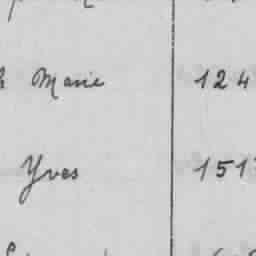 Marie 124
Yves 151